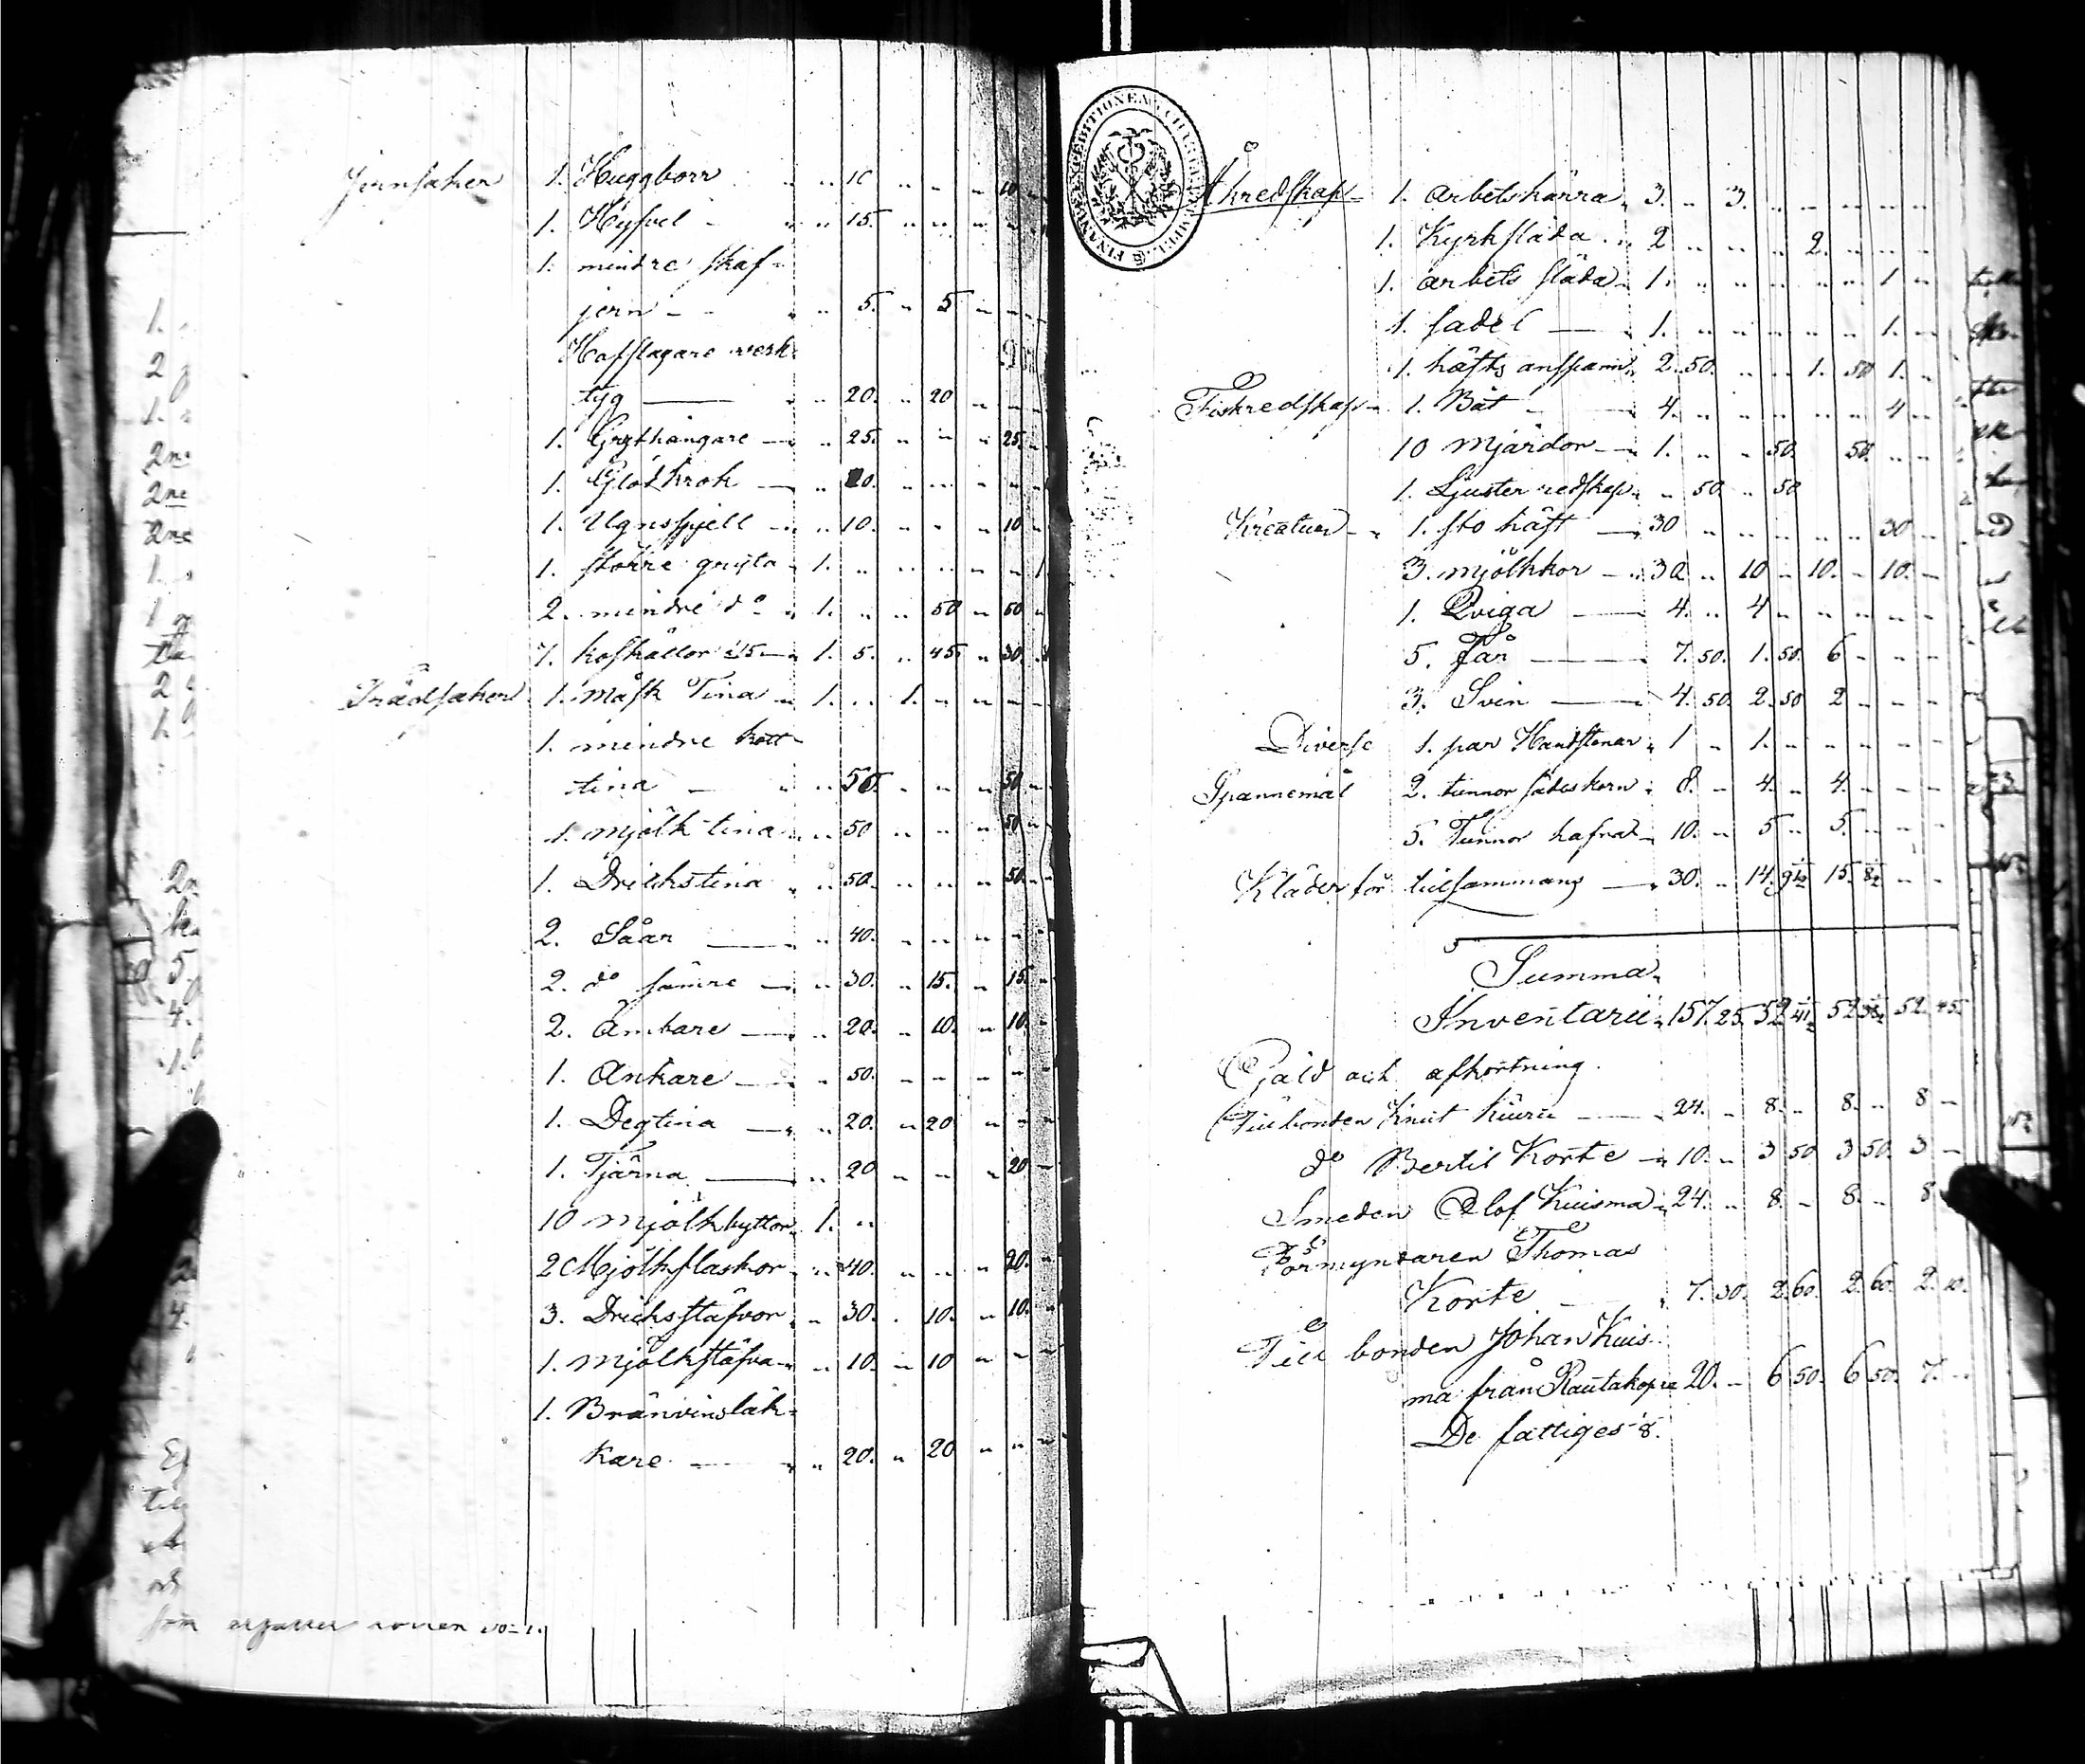 Jernsaker 1. Huggborr " " 10 " " " " 10 "
1. Hyfvel - " " 15. " " " "
1. mindre skaf=
jern - - " " 5. " 5 " " "
Hofslagare verk=
tyg — " " 20. " 20 " " "
1. Grythängare — " " 25. " " " 25. "
1. Glödkrok — " " 20. " " " "
1. Ugnsspjell — " " 10. " " " 10 "
1. större gryta " 1. " " " " " 1.
2. mindre do " 1. " " 50 " 50 "
7. koskällor à 15 — " 1. 5. " 45 " 30.
Trädsaker 1. Mäsk Tina " 1. " 1. " " "
1. mindre kött=
tina — " " 50. " " " 50 "
1. mjölk tina " " 50 " " " 50 "
1. Drickstina " " 50. " " " 50. "
2. Såar — " 40. " " " "
2. do sämre — " 30. " 15. " 15. "
2. Ämbare — " 20. " 10. " 10. "
1. Ankare — " 50. " " " "
1. Degtina — " " 20. " 20 " "
1. Tjärna — " 20 " " " 20 —
10 Mjölkbyttor 1. "
2 Mjölkflaskor " " 40. " " " 20. "
3. Dricksstäfvor " 30. . 10. " 10.
1. Mjölkstäfva " " 10. " 10 " "
1. Bränvinsläk=
kare — " " 20. " 20 " "
Åkredskap 1. arbetskärra " 3. " 3. " " " " "
1. Kyrksläda " 2 " " " " 2. " " "
1. arbets släda " 1. " " " " " " 1 "
1. sadel — " 1. " " " " " 1. "
1. hästs anspann " 2. 50. " " 1. 50 1. "
Fiskredskap 1. Båt — " 4. " " " " " 4. "
10 Mjärdor — " 1. " " 50. 50. " " "
1. Ljuster redskap " " 50. " 50
Kreatur 1. sto häst — 30 " " " " " 30 "
3. mjölkkor — " 30 " 10 " 10. " 10. "
1. Qviga — 4. " 4 " " " " "
5. Får — 7. 50. 1. 50. 6 " " "
3. Svin — 4. 50. 2. 50 2 " " "
Diverse 1. par Handstenar " 1 " 1. " " " " "
Spannemål 2. tunnor sädeskorn " 8. " 4. " 4. " " "
5. Tunnor hafra " 10. " 5 " 5. " " "
Kläder för tillsammans — 30. " 14. 9½ 15. 8½ " "
Summa
Inventarii " 157. 25. 52 41½ 52 38½ 52. 45.
Gäld och afkortning.
Till bonden Knut Kiuru — " 24. " 8. " 8. " 8 —
do Bertil Korte — " 10. " 3 50 3 50. 3 —
Smeden Olof Kuisma " 24. " 8. " 8. " 8
Förmyndaren Thomas
Korte — 7. 30. 2. 60. 2. 60. 2. 10.
Till bonden Johan Kuis
ma från Rautakopie 20. " 6 50. 6 50. 7. "
De fattiges